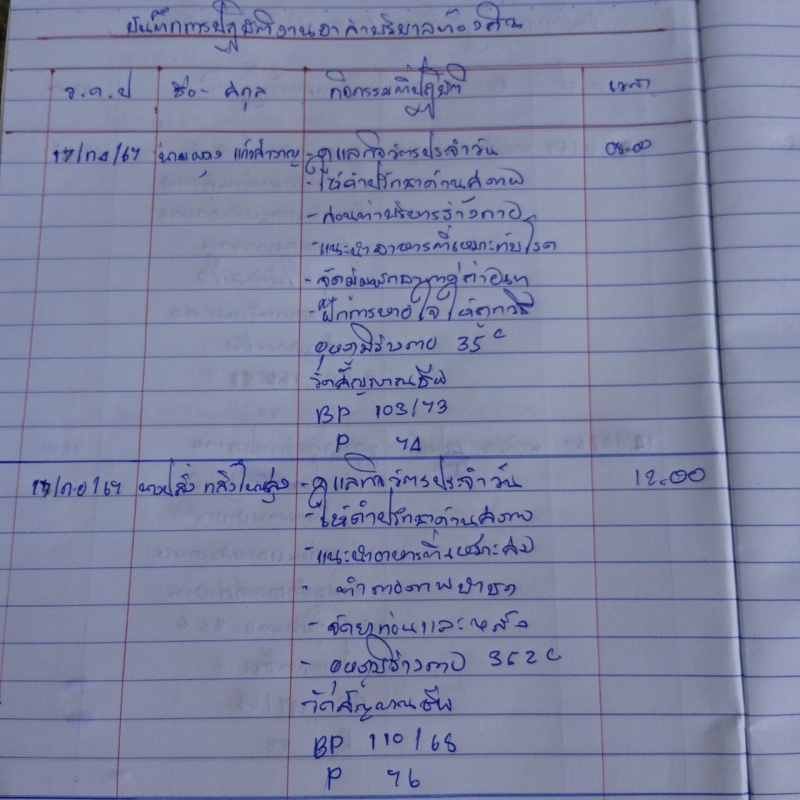 บันทึกการปฏิบัติงานอาสาบริบาลท้องถิ่น
ว.ด.ป ชื่อ - สกุล กิจกรรมที่ปฏิบัติ เวลา
17/ก.ค/67 แก้วสำราญ - ดูแลกิจวัตรประจำวัน 08.00
- ให้คำปรึกษาด้านสุขภาพ
- สอนท่าบริหารร่างกาย
- แนะนำอาหารที่เหมาะกับโรค
- ฝึกการหายใจให้ถูกวิธี
อุณหภูมิร่างกาย 35 c
วัดสัญญาณชีพ
BP 103/73
P 74
17/ก.ค/67 - ดูแลกิจวัตรประจำวัน 12.00
- ให้คำปรึกษาด้านสุขภาพ
- แนะนำอาหารที่เหมาะสม
- ทำกายภาพบำบัด
- จัดยาก่อนและหลัง
- อุณหภูมิร่างกาย 352 c
วัดสัญญาณชีพ
BP 110/68
P 76